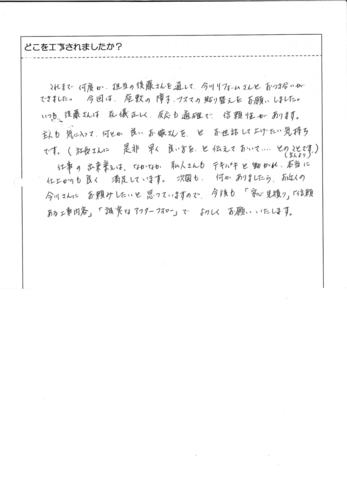 どこを工事されましたか？
これまで 何度か、担当の後藤さんを通して、今川リフォームさんと おつきあいが
できました。 今回は、座敷の 障子、フスマの貼り替えを お願いしました。
いつも、後藤さんは 礼儀正しく、反応も適確で、信頼性があります。
主人も 気に入って、何とか 良い お嫁さんを、と お世話して上げたい気持ち
です。(社長さんに 是非 早く 良い方を、と 伝えておいて…… とのことです)
仕事の 出来栄えは、なかなか、職人さんも テキパキと 動かれ、本当に
仕上がりも良く 満足しています。 次回も、何か ありましたら、お近くの
今川さんに お願みしたいと 思っていますので、今後も 「安心見積り」「信頼
ある工事内容」「誠実なアフターフォロー」で よろしく お願いいたします。